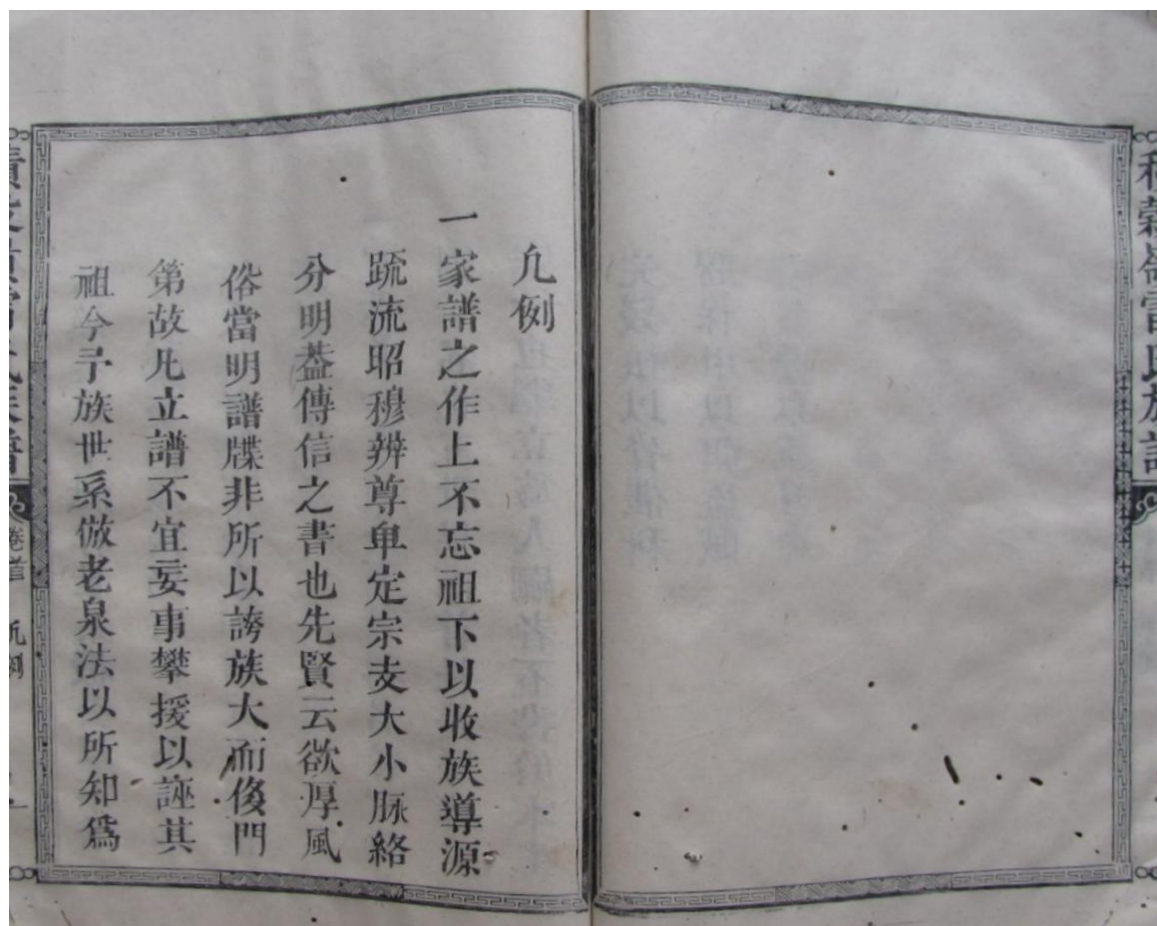 凢例
一家譜之作上不忘祖下以收族導源
䟽流昭穆辨尊卑定宗支大小脉絡
分明葢傳信之書也先賢云欲厚風
俗當明譜牒非所以誇族大而侈門
第故凡立譜不宜妄事攀援以誣其
祖今予族世系倣老泉法以所知爲
氏族譜
卷首 凢例